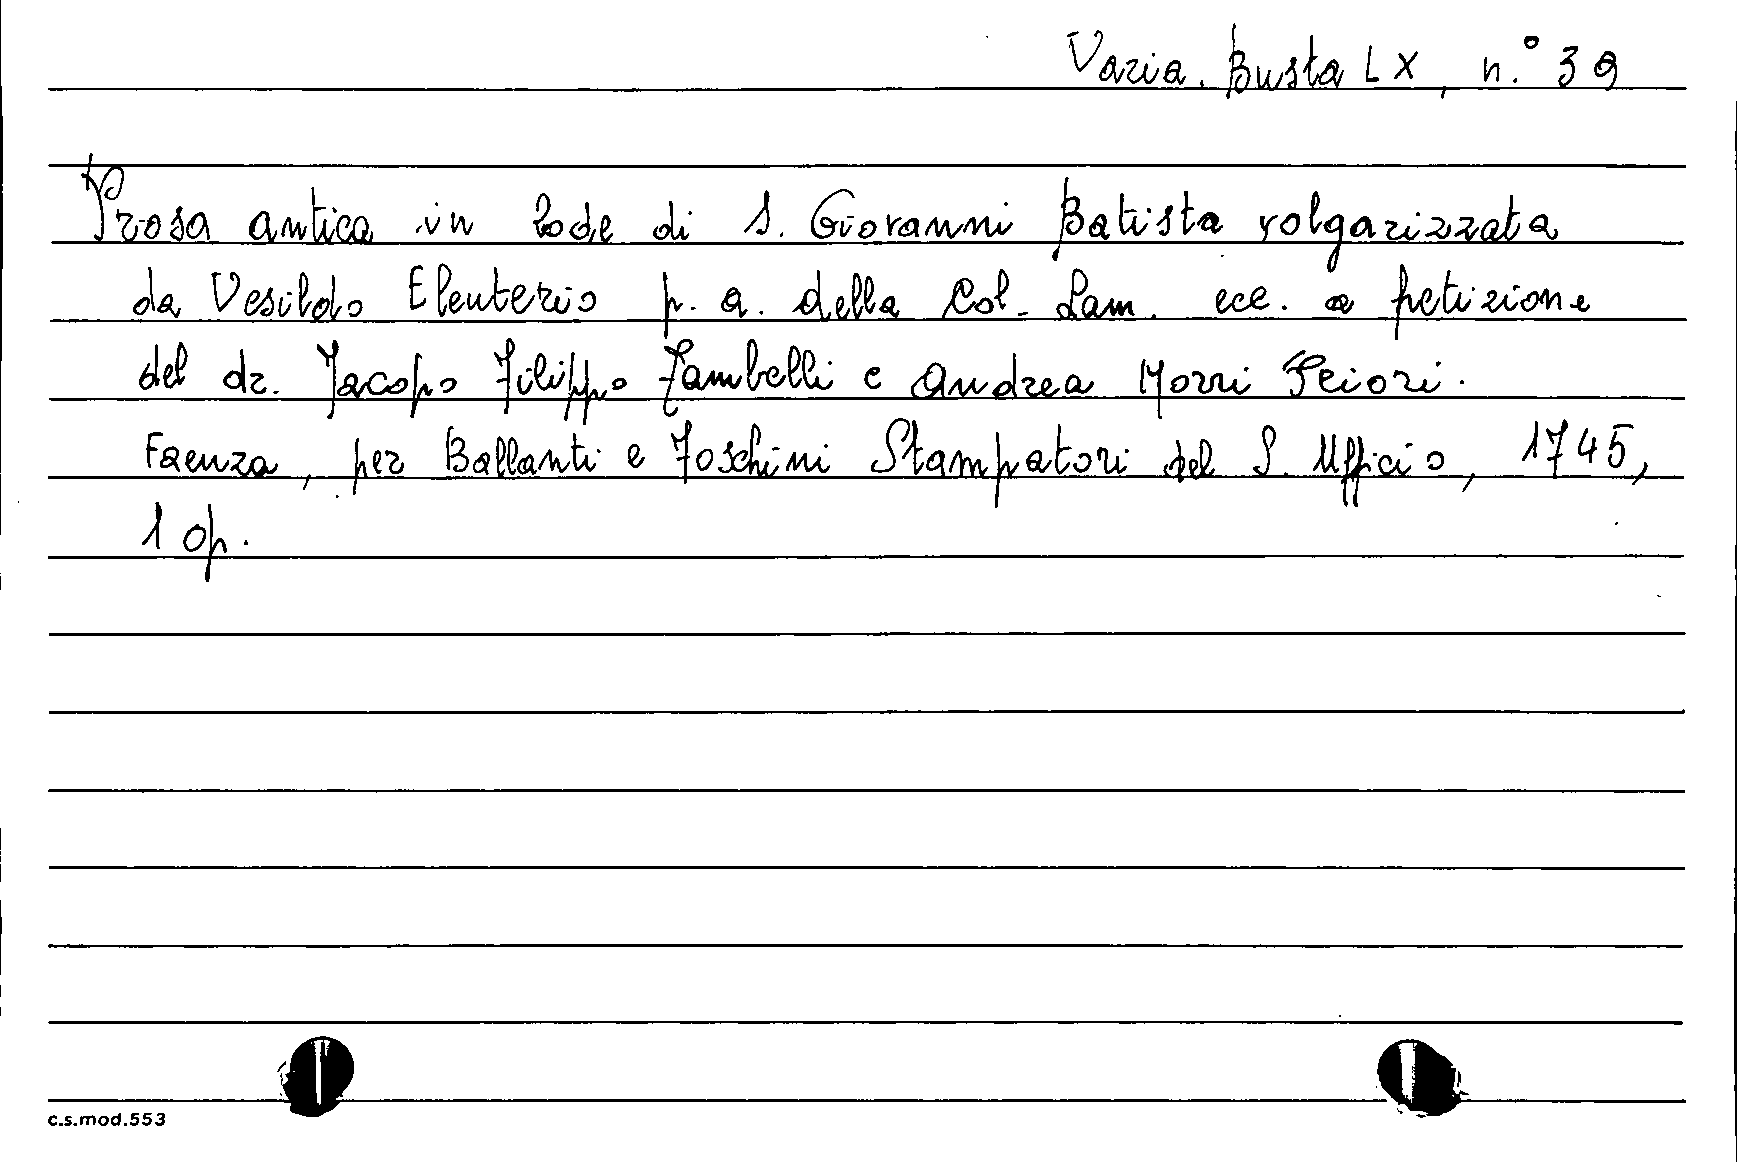 Varia. Busta LX, n.° 39
Prosa antica in lode di S. Giovanni Batista volgarizzata
da Vesildo Eleuterio p. a. della Col. Lam. ecc. a petizione
del dr. Jacopo Filippo Zambelli e Andrea Morri Priori.
Faenza, per Ballanti e Foschini Stampatori del S. Ufficio, 1745,
1 op.
c.s.mod.553